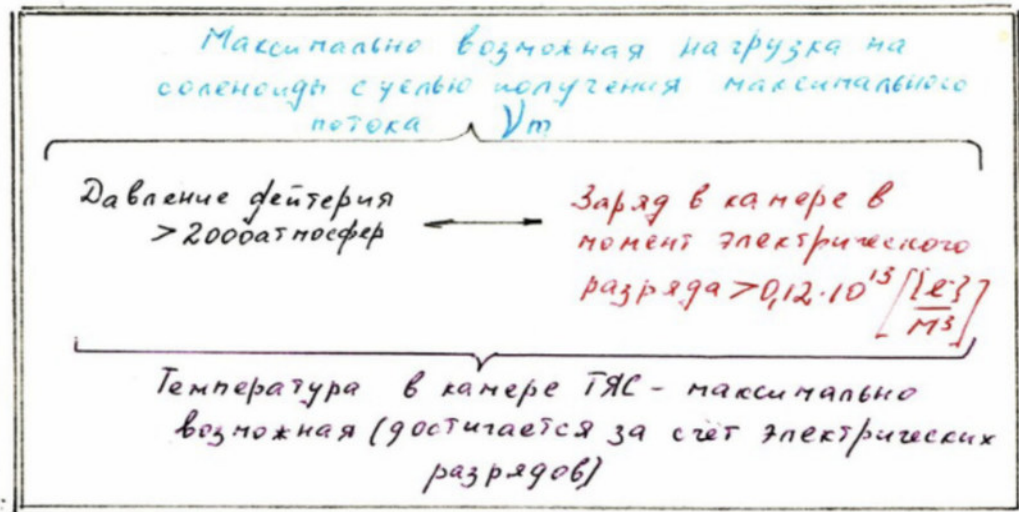 Максимально возможная нагрузка на
соленоиды с целью получения максимального
потока νm
Давление дейтерия
>2000атмосфер
Заряд в камере в
момент электрического
разряда >0,12·10¹³ [{e}/м³]
Температура в камере ТЯС - максимально
возможная (достигается за счёт электрических
разрядов)